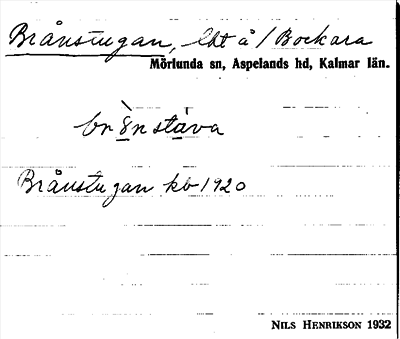 Brånstugan, lht å / Bockara
Mörlunda sn, Aspelands hd, Kalmar län.
br ɔ̀n stáva
Brånstugan kb 1920
NILS HENRIKSON 1932